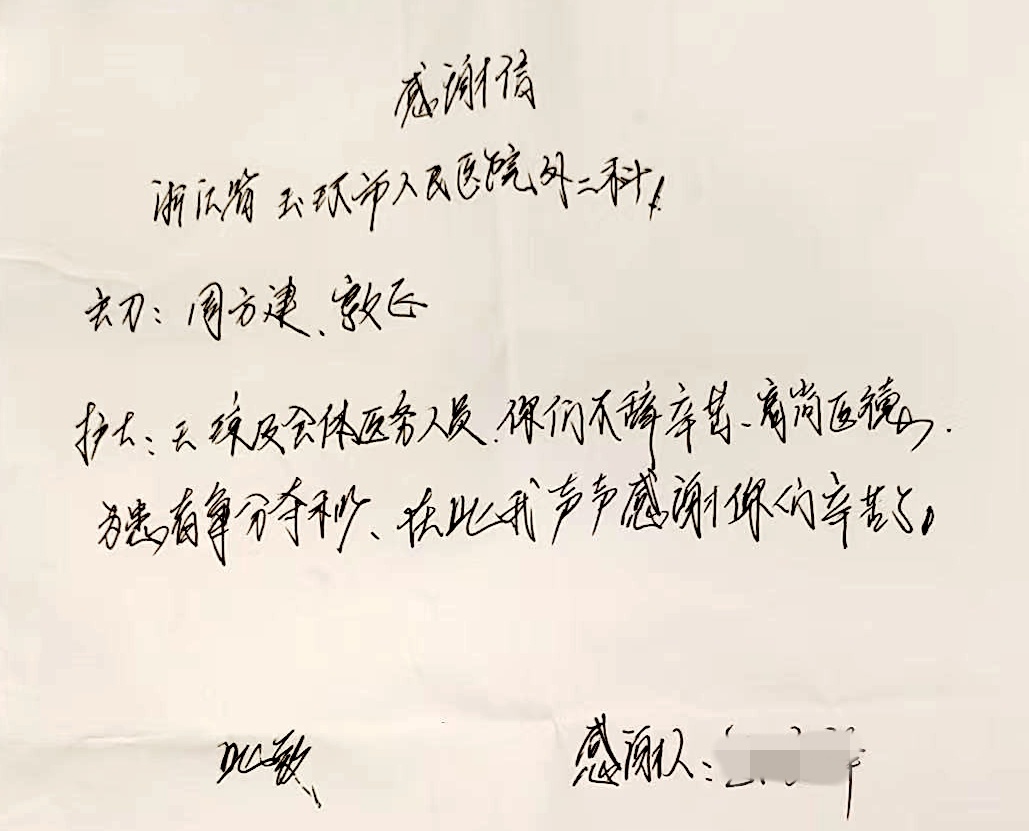 感谢信
浙江省玉环市人民医院外二科!
主刀:周方建、敦正
护士:王 及全体医务人员.你们不辞辛苦、高尚医德.
为患者争分夺秒、在此我声声感谢你们辛苦了。
此致 感谢人: